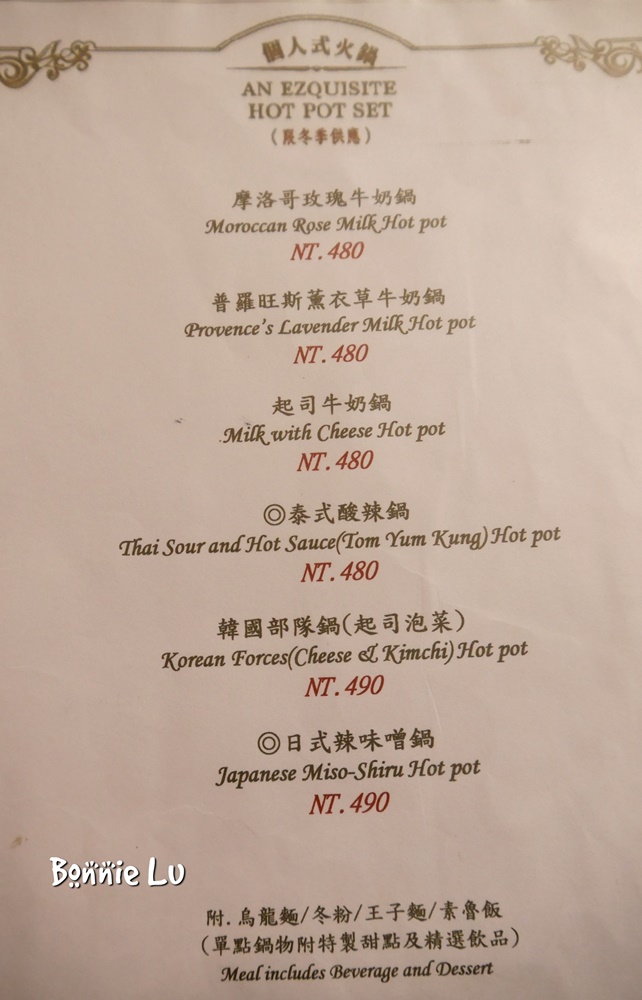 個人式火鍋
AN EZQUISITE
HOT POT SET
(限冬季供應)
摩洛哥玫瑰牛奶鍋
Moroccan Rose Milk Hot pot
NT.480
普羅旺斯薰衣草牛奶鍋
Provence's Lavender Milk Hot pot
NT.480
起司牛奶鍋
Milk with Cheese Hot pot
NT.480
◎泰式酸辣鍋
Thai Sour and Hot Sauce(Tom Yum Kung)Hot pot
NT.480
韓國部隊鍋(起司泡菜)
Korean Forces(Cheese & Kimchi)Hot pot
NT.490
◎日式辣味噌鍋
Japanese Miso-Shiru Hot pot
NT.490
Bonnie Lu
附.烏龍麵/冬粉/王子麵/素魯飯
(單點鍋物附特製甜點及精選飲品)
Meal includes Beverage and Dessert